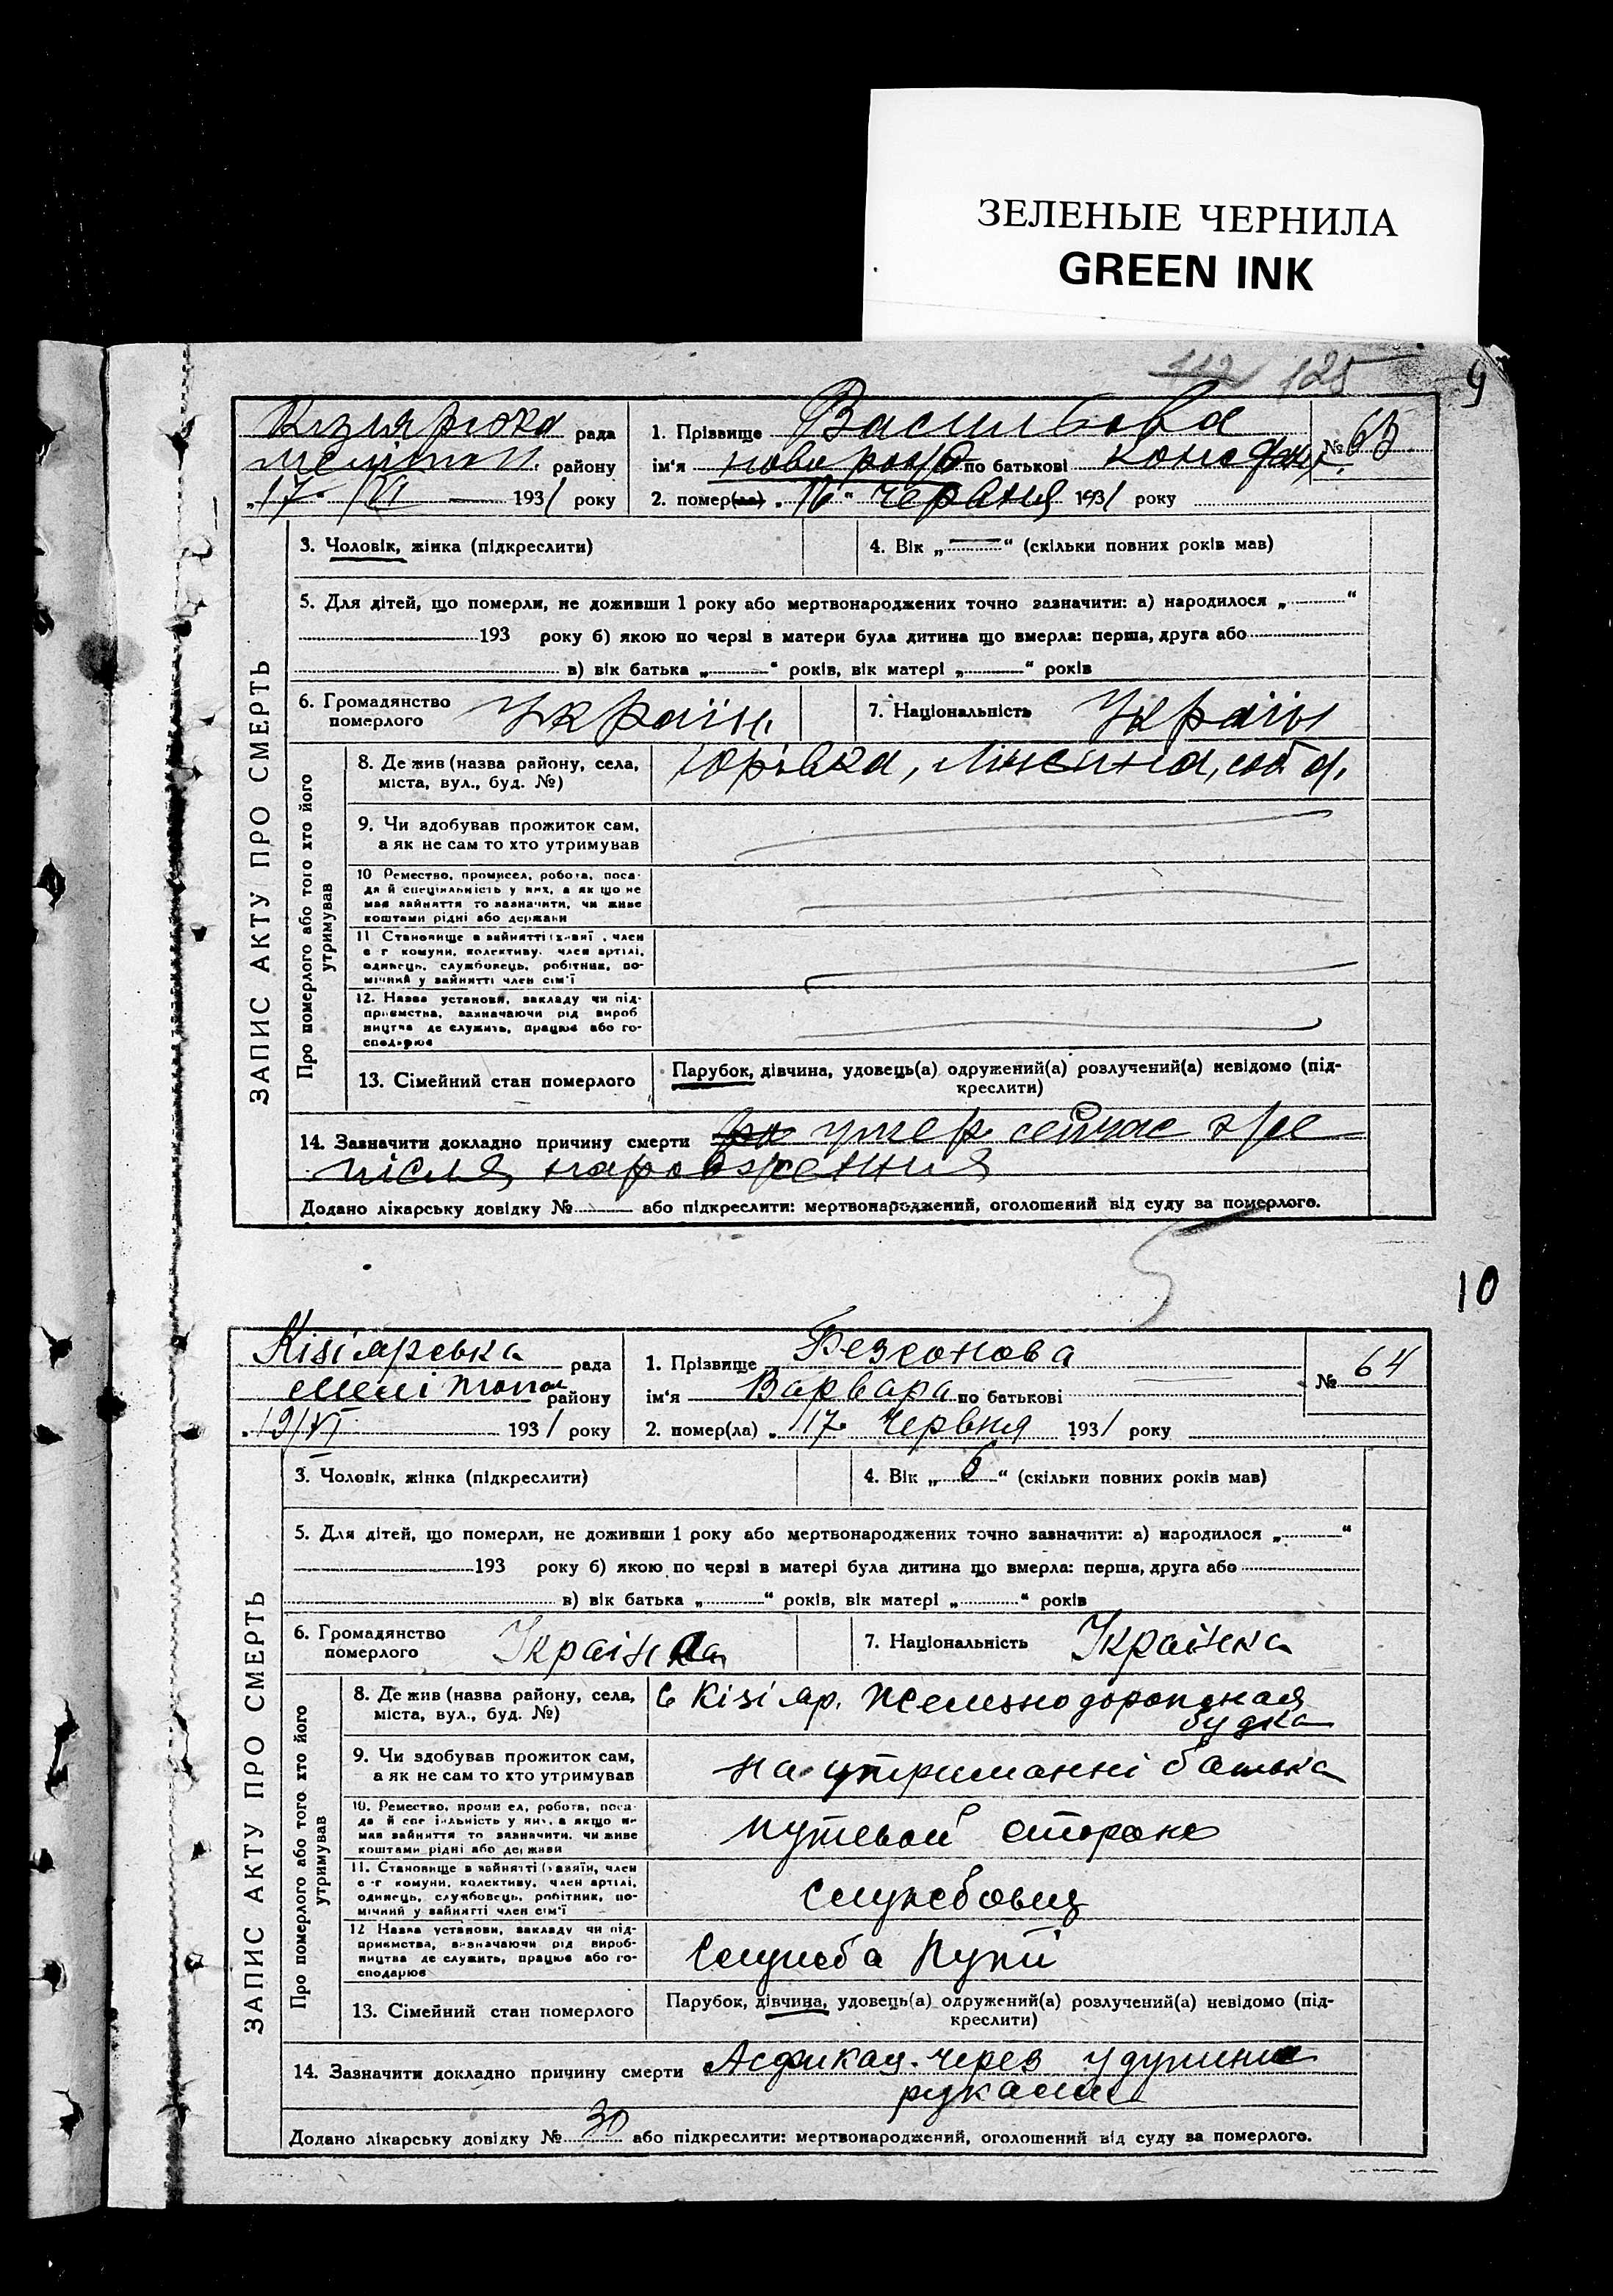 ЗЕЛЕНЫЕ ЧЕРНИЛА
GREEN INK
112 125 9
рада 1. Прізвище Васильова № 63
району ім'я новорожд по батькові
„17" VI 1931 року 2. помер(ла) „16" червня 1931 року
ЗАПИС АКТУ ПРО СМЕРТЬ
3. Чоловік, жінка (підкреслити) 4. Вік „—" (скільки повних років мав)
5. Для дітей, що померли, не доживши 1 року або мертвонароджених точно зазначити: а) народилося „ "
193 року б) якою по черзі в матери була дитина що вмерла: перша, друга або
в) вік батька „ " років, вік матері „ " років
6. Громадянство померлого Україн. 7. Національність Україн
Про померлого або того хто його утримував
8. Де жив (назва району, села, Юрівка,
міста, вул., буд. №)
9. Чи здобував прожиток сам,
а як не сам то хто утримував
10 Ремество, промисел, робота, поса-
да й спеціяльність у них, а як що не
мав зайняття то зазначити, чи живе
коштами рідні або держави
11 Становище в зайнятті (хазяїн, член
с-г комуни, колективу, член артілі,
одинець, службовець, робітник, по-
мічний у зайнятті член сім'ї
12. Назва установи, закладу чи під-
приємства, зазначаючи рід вироб
ництва де служить, працює або го-
сподарює
13. Сімейний стан померлого Парубок, дівчина, удовець(а) одружений(а) розлучений(а) невідомо (під-
креслити)
14. Зазначити докладно причину смерти умер сейчас же
після нарождения
Додано лікарську довідку № або підкреслити: мертвонароджений, оголошений від суду за померлого.
10
Кізіярська рада 1. Прізвище Безсонова № 64
Мелітопол району ім'я Варвара по батькові —
„19/VI 1931 року 2. помер(ла) „17" червня 1931 року
ЗАПИС АКТУ ПРО СМЕРТЬ
3. Чоловік, жінка (підкреслити) 4. Вік „6" (скільки повних років мав)
5. Для дітей, що померли, не доживши 1 року або мертвонароджених точно зазначити: а) народилося „ "
193 року б) якою по черзі в матері була дитина що вмерла: перша, друга або
в) вік батька „ " років, вік матері „ " років
6. Громадянство померлого Українка 7. Національність Українка
Про померлого або того хто його утримував
8. Де жив (назва району, села, С Кізіяр. Железнодорожная
міста, вул., буд. №) будка
9. Чи здобував прожиток сам, на утриманні батька
а як не сам то хто утримував
10. Ремество, промисел, робота, поса-
да й спеціяльність у них, а якщо не путевой сторож
мав зайняття то зазначити, чи живе
коштами рідні або держави
11. Становище в зайнятті (хазяїн, член
с-г комуни, колективу, член артілі, службовец
одинець, службовець, робітник, по-
мічний у зайнятті член сім'ї
12 Назва установи, закладу чи під-
приємства, зазначаючи рід вироб- Служба Пути
ництва де служить, працює або го-
сподарює
13. Сімейний стан померлого Парубок, дівчина, удовець(а) одружений(а) розлучений(а) невідомо (під-
креслити)
14. Зазначити докладно причину смерти через удушение
руками
Додано лікарську довідку № 30 або підкреслити: мертвонароджений, оголошений від суду за померлого.